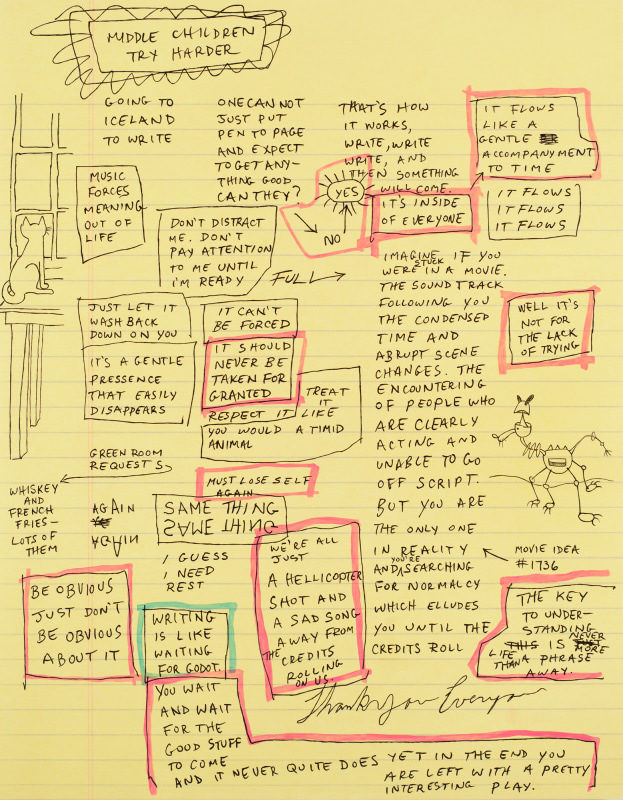 MIDDLE CHILDREN
TRY HARDER
GOING TO
ICELAND
TO WRITE
ONE CAN NOT
JUST PUT
PEN TO PAGE
AND EXPECT
TO GET ANY-
THING GOOD
CAN THEY?
THAT'S HOW
IT WORKS,
WRITE, WRITE
WRITE, AND
THEN SOMETHING
WILL COME.
YES
NO
IT'S INSIDE
OF EVERYONE
IT FLOWS
LIKE A
GENTLE
ACCOMPANYMENT
TO TIME
IT FLOWS
IT FLOWS
IT FLOWS
MUSIC
FORCES
MEANING
OUT OF
LIFE
DON'T DISTRACT
ME. DON'T
PAY ATTENTION
TO ME UNTIL
I'M READY
FULL
JUST LET IT
WASH BACK
DOWN ON YOU
IT CAN'T
BE FORCED
IT'S A GENTLE
PRESSENCE
THAT EASILY
DISAPPEARS
IT SHOULD
NEVER BE
TAKEN FOR
GRANTED
TREAT
IT
RESPECT IT LIKE
YOU WOULD A TIMID
ANIMAL
IMAGINE IF YOU
WERE STUCK IN A MOVIE.
THE SOUNDTRACK
FOLLOWING YOU
THE CONDENSED
TIME AND
ABRUPT SCENE
CHANGES. THE
ENCOUNTERING
OF PEOPLE WHO
ARE CLEARLY
ACTING AND
UNABLE TO GO
OFF SCRIPT.
BUT YOU ARE
THE ONLY ONE
IN REALITY
AND YOU'RE SEARCHING
FOR NORMALCY
WHICH ELLUDES
YOU UNTIL THE
CREDITS ROLL
WELL IT'S
NOT FOR
THE LACK
OF TRYING
MOVIE IDEA
#1736
GREEN ROOM
REQUESTS
WHISKEY
AND
FRENCH
FRIES–
LOTS OF
THEM
AGAIN
AGAIN
MUST LOSE SELF
AGAIN
SAME THING
SAME THING
I GUESS
I NEED
REST
WE'RE ALL
JUST
A HELLICOPTER
SHOT AND
A SAD SONG
AWAY FROM
THE CREDITS
ROLLING
ON US.
BE OBVIOUS
JUST DON'T
BE OBVIOUS
ABOUT IT
WRITING
IS LIKE
WAITING
FOR GODOT.
THE KEY
TO UNDER-
STANDING
LIFE THIS IS NEVER MORE
THAN A PHRASE
AWAY.
Thank you Everyone
YOU WAIT
AND WAIT
FOR THE
GOOD STUFF
TO COME
AND IT NEVER QUITE DOES YET IN THE END YOU
ARE LEFT WITH A PRETTY
INTERESTING PLAY.